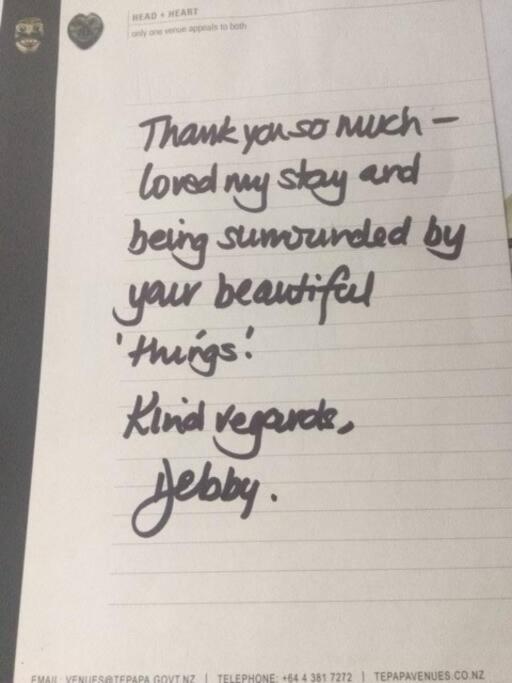 HEAD + HEART
only one venue appeals to both
Thank you so much –
loved my stay and
being surrounded by
your beautiful
'things'.
Kind regards,
Debby.
EMAIL: VENUES@TEPAPA.GOVT.NZ | TELEPHONE: +64 4 381 7272 | TEPAPAVENUES.CO.NZ